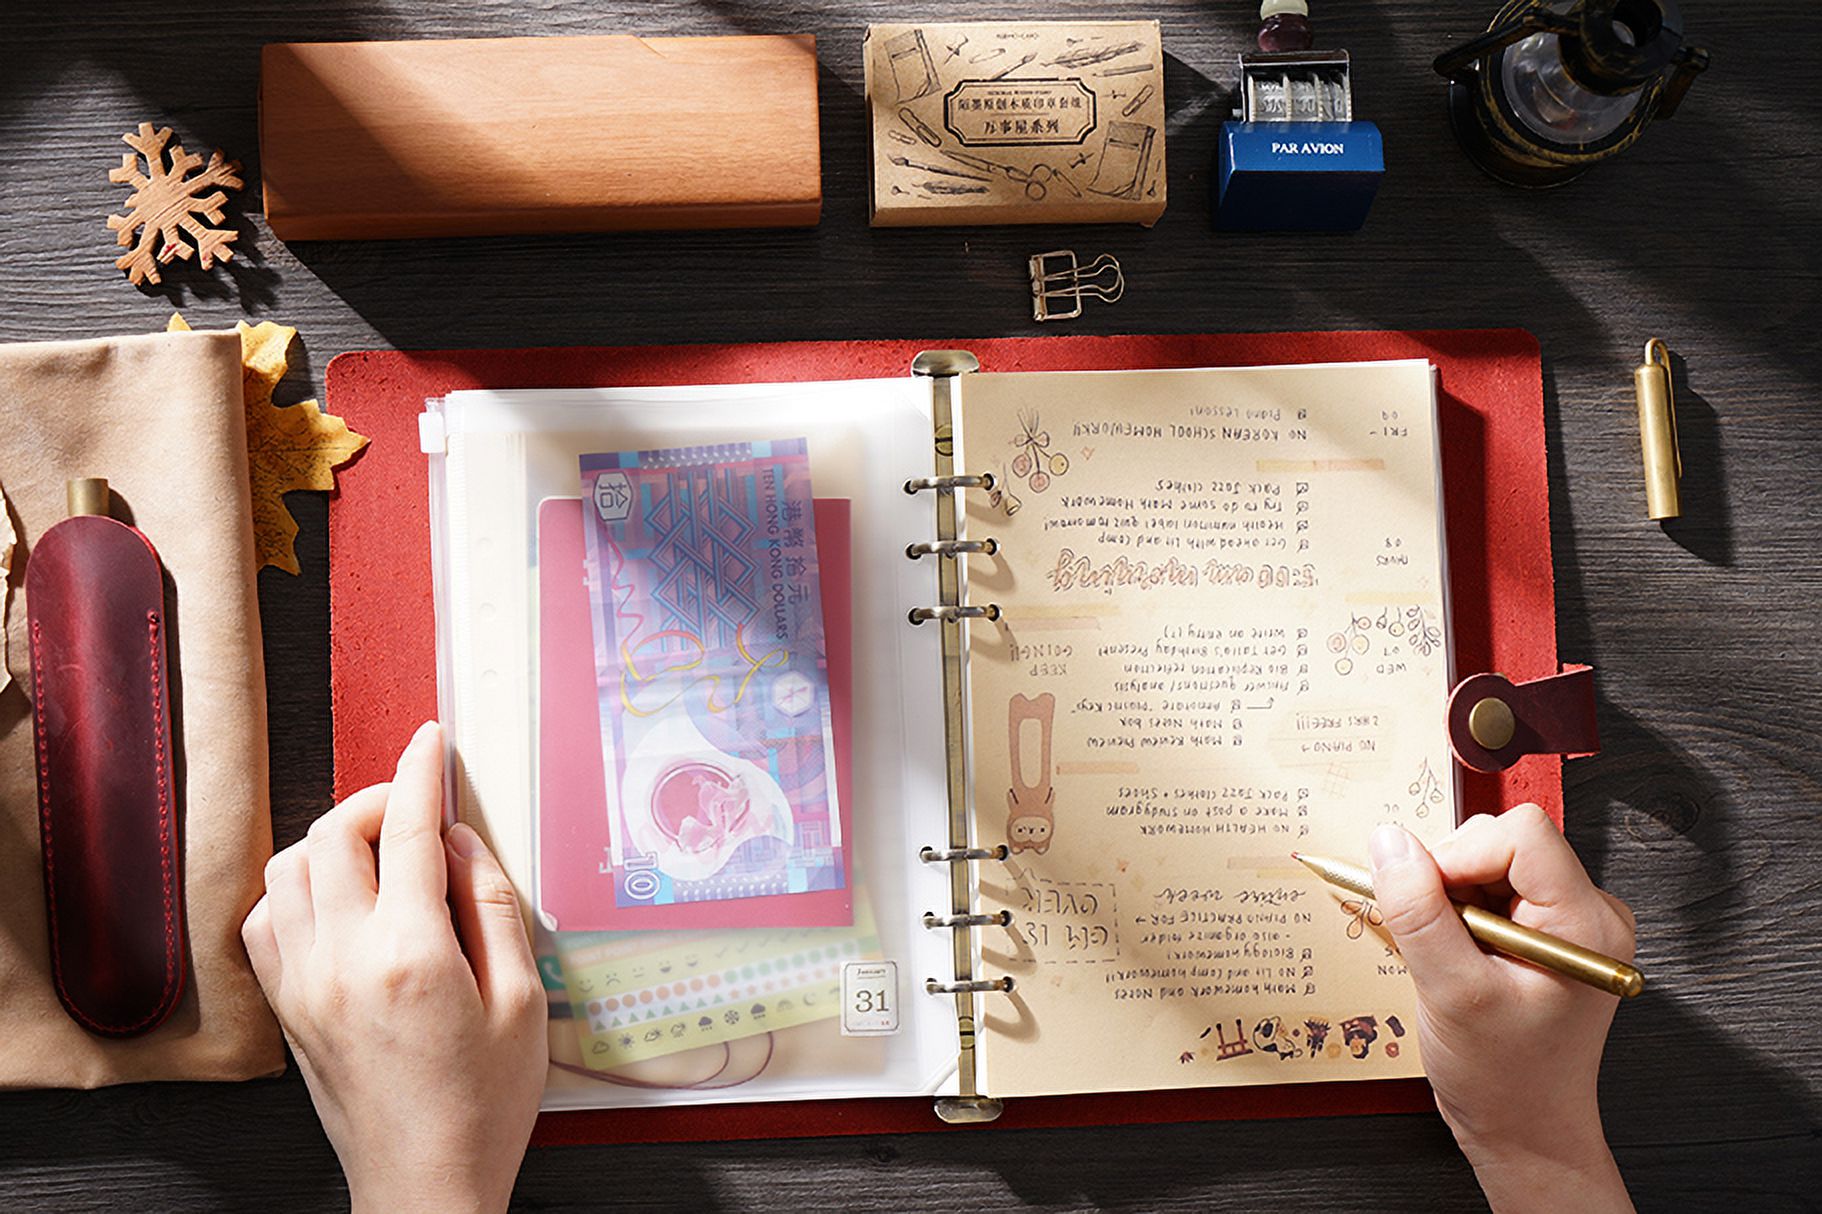 陌墨原創木质印章套组
万事屋系列
PAR AVION
拾
港幣拾元
TEN HONG KONG DOLLARS
10
January
31
Math homework and Notes
NO Lit and Comp homework!!
Biology homework!
- also organize folder
NO PIANO PRACTICE FOR →
entire week
MON
GYM IS
OVER
NO HEALTH HOMEWORK
Make a post on studygram
Pack Jazz clothes + Shoes
NO PIANO →
2 HRS FREE!!!
Math Review Preview
Math Notes box
Annotate
Answer questions / analysis
Bio Replication reflection
Get Talia's Birthday Present!
Write an entry (?)
WED
07
KEEP
GOING!!
THURS
08
Get ahead with Lit and Comp
Health nutrition label quiz tomorrow!
Try to do some Math Homework
Pack Jazz clothes
FRI
09
NO KOREAN SCHOOL HOMEWORK!!
Piano Lesson!